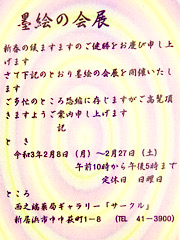 墨絵の会展
新春の候ますますのご健勝をお慶び申し上
げます
さて下記のとおり墨絵の会展を開催いたし
ます
ご多忙のところ恐縮に存じますがご高覧頂
きますようご案内申し上げます
記
とき
令和3年2月8日(月)~2月27日(土)
午前10時から午後5時まで
定休日 日曜日
ところ
西之端薬局ギャラリー「サークル」
新居浜市中中萩町1-8 (TEL 41-3900)